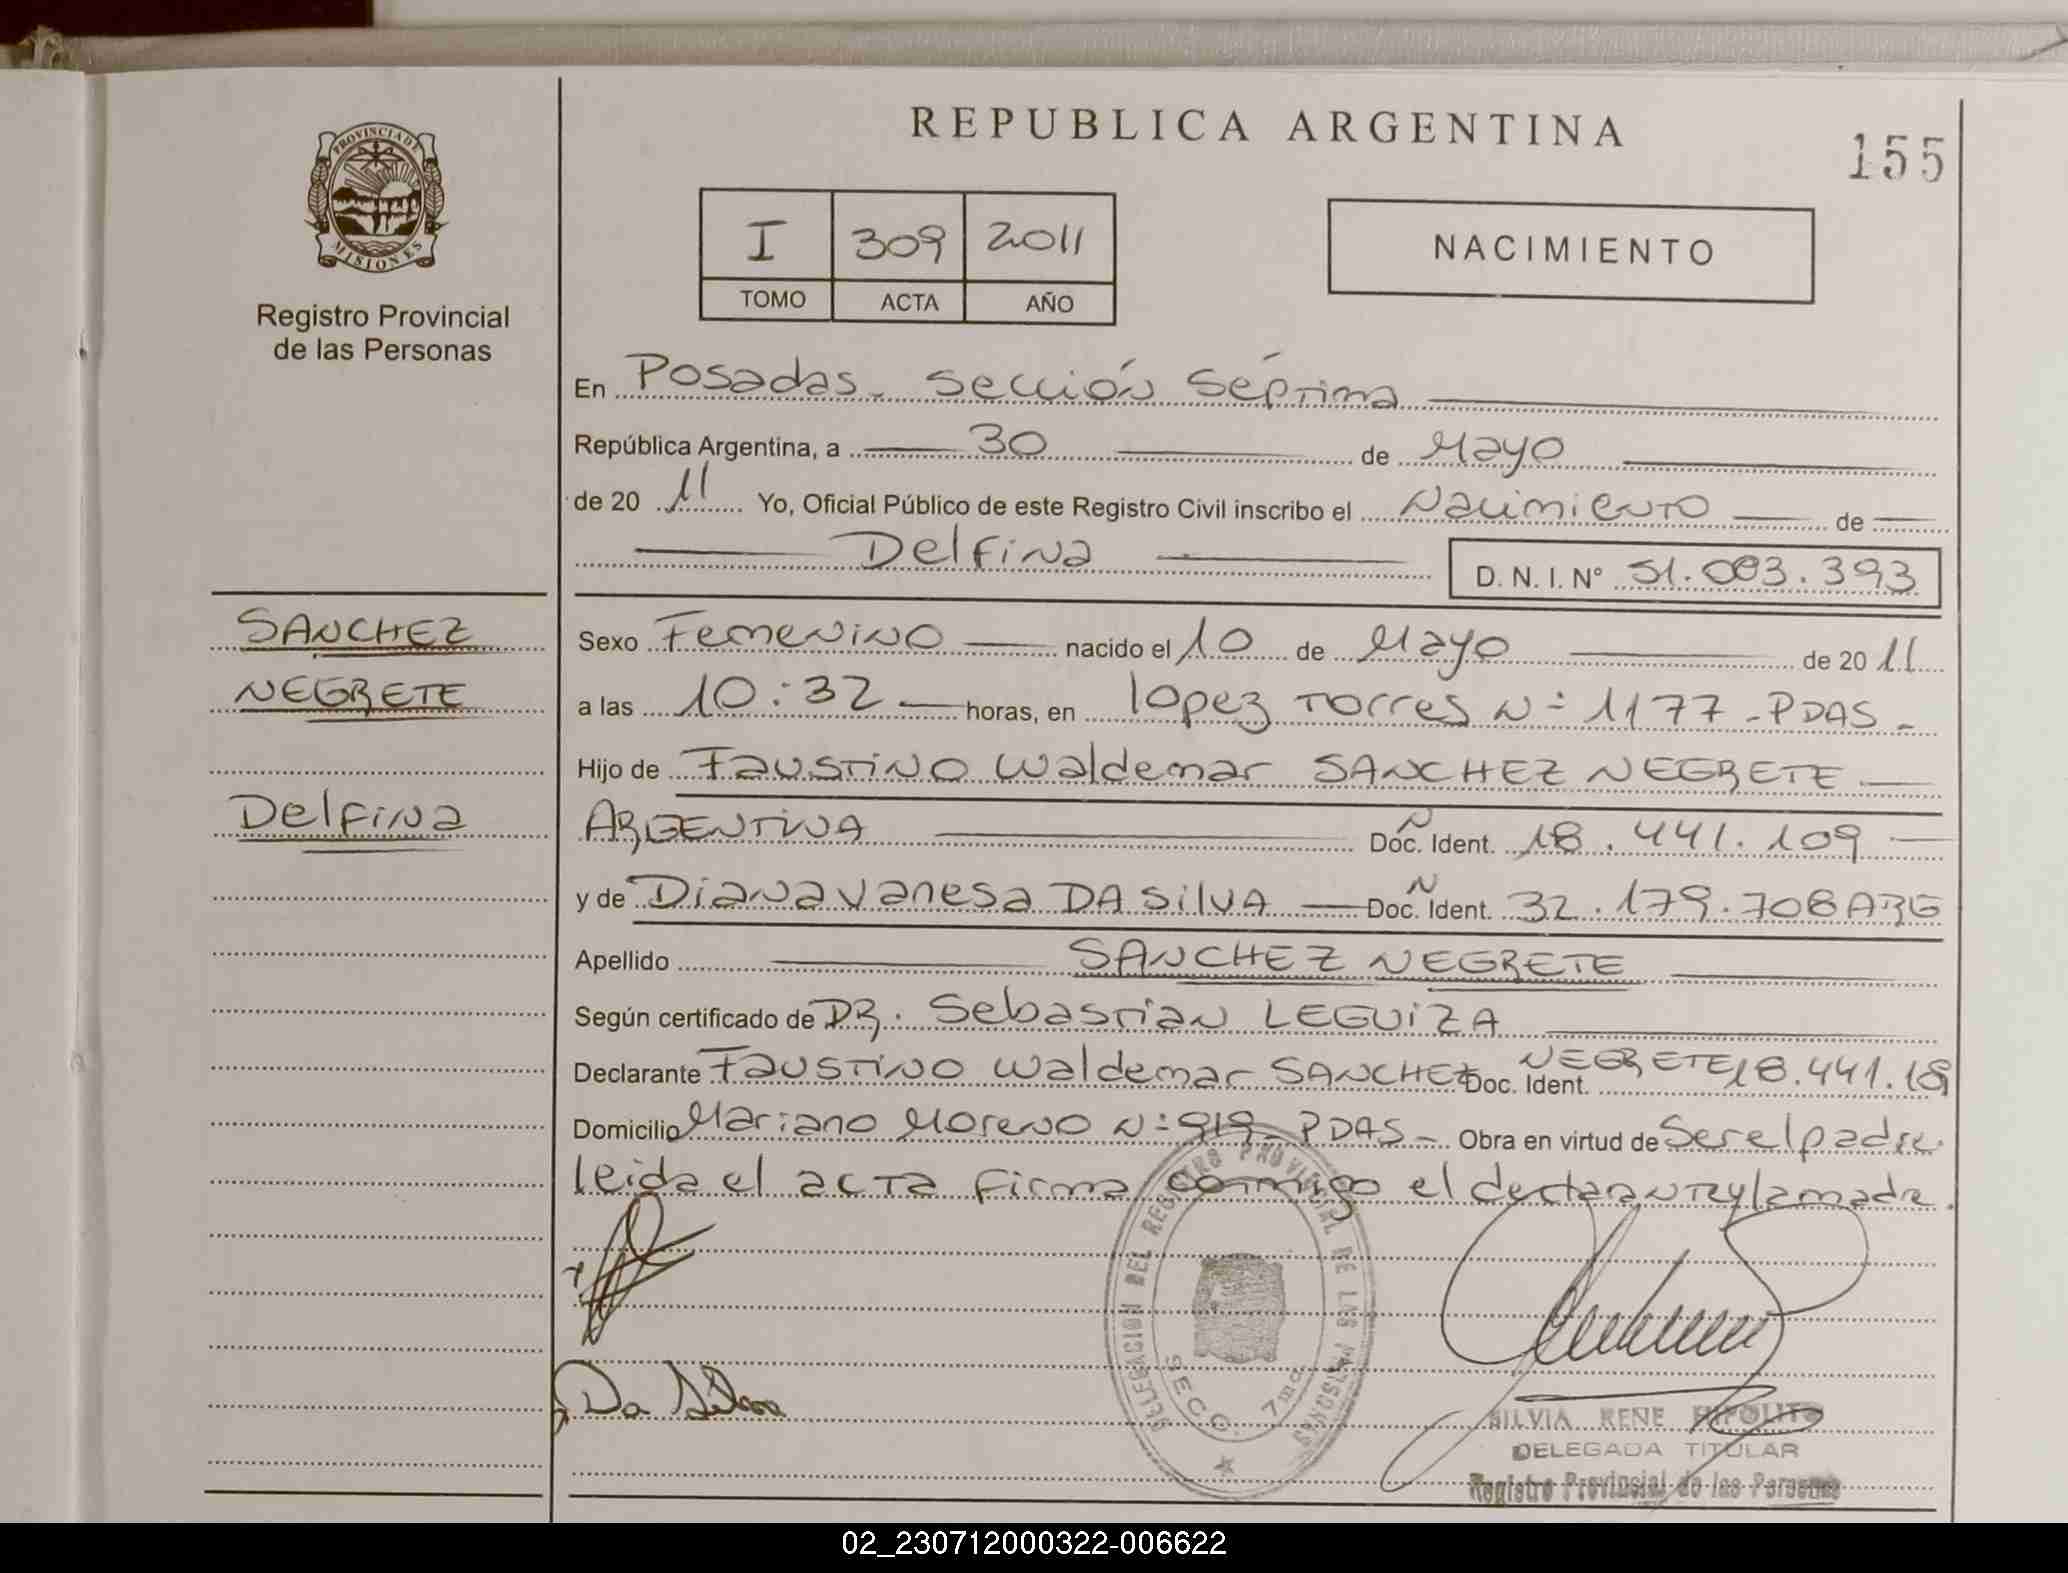 REPUBLICA ARGENTINA
155
PROVINCIA DE
MISIONES
Registro Provincial
de las Personas
I 309 2011
TOMO ACTA AÑO
NACIMIENTO
En Posadas. Sección Séptima
República Argentina, a 30 de Mayo
de 20 11 Yo, Oficial Público de este Registro Civil inscribo el Nacimiento de
Delfina D. N. I. Nº 51.083.393
SANCHEZ
NEGRETE
Delfina
Sexo Femenino nacido el 10 de Mayo de 20 11
a las 10:32 horas, en lopez Torres Nº 1177 - PDAS -
Hijo de Faustino Waldemar SANCHEZ NEGRETE
ARGENTINA N Doc. Ident. 18.441.109
y de Diana Vanesa DA SilVA N Doc. Ident. 32.179.708 ARG
Apellido SANCHEZ NEGRETE
Según certificado de DR. Sebastian LEGUIZA
Declarante Faustino Waldemar SANCHEZ NEGRETE Doc. Ident. 18.441.109
Domicilio Mariano Moreno Nº 919 - PDAS - Obra en virtud de Ser el padre
leida el acta firma conmigo el declarante y la madre.
Da Silva
DELEGACION DEL REGISTRO PROVINCIAL DE LAS PERSONAS
SECC. 7ma
SILVIA RENE HIPOLITO
DELEGADA TITULAR
Registro Provincial de las Personas
02_230712000322-006622